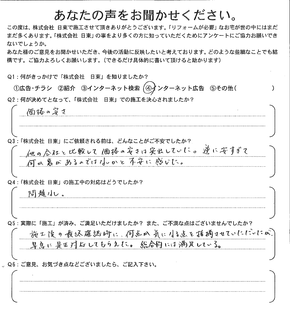 あなたの声をお聞かせください。
この度は、株式会社 日東で施工させて頂きありがとうございます。「リフォームが必要」なお宅が世の中にはまだ
まだ多くあります。「株式会社 日東」の事をより多くの方に知っていただくためにアンケートにご協力お願いでき
ないでしょうか。
あなた様のご意見をお聞かせいただき、今後の活動に反映したいと考えております。どのような些細なことでも結
構です。ご協力よろしくお願いします。（できるだけ具体的に書いて頂けると助かります）
Q1：何がきっかけで「株式会社 日東」を知りましたか？
①広告・チラシ ②紹介 ③インターネット検索 ④インターネット広告 ⑤その他（ ）
Q2：何が決めてとなって、「株式会社 日東」での施工を決心されましたか？
価格の安さ
Q3：「株式会社 日東」にご依頼される前は、どんなことがご不安でしたか？
他の会社と比較して価格の安さは突出していた。逆に安すぎて
何か裏があるのではないかと不安に感じた。
Q4：「株式会社 日東」の施工中の対応はどうでしたか？
問題なし。
Q5：実際に「施工」が済み、ご満足いただけましたか？ また、ご不満な点はございませんでしたか？
施工後の最終確認時に、何点か気になる点を指摘させていただいたが、
早急に是正対応してもらえた。総合的には満足している。
Q6：ご意見、お気づき点などございましたら、ご記入下さい。